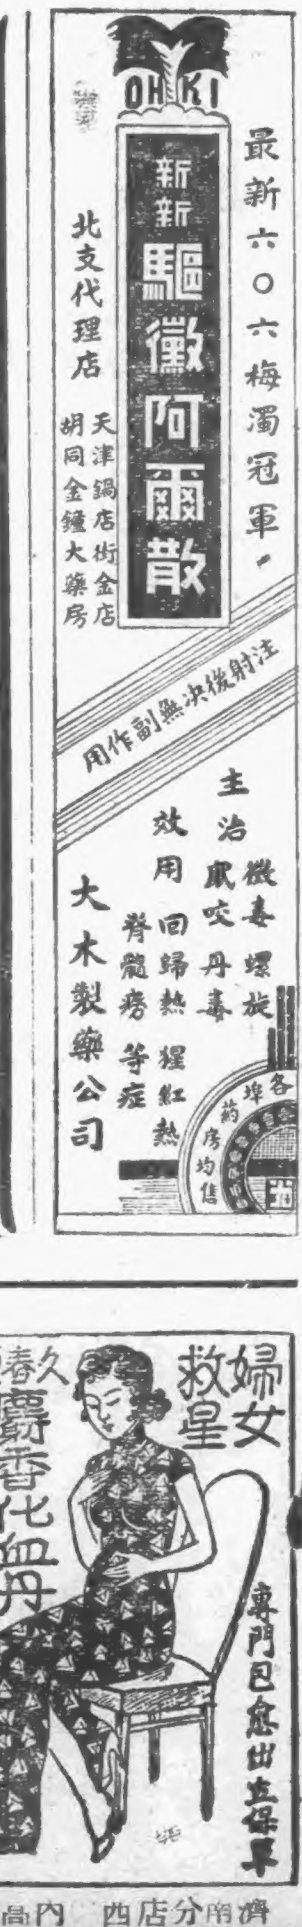 OHKI
最新六〇六梅濁冠軍
新新
驅黴阿爾散
北支代理店
天津鍋店街金店
胡同金鐘大藥房
注射後決無副作用
主治
黴毒 螺旋
鼠咬 丹毒
效用
回歸熱 猩紅熱
脊髓癆 等症
大木製藥公司
各埠藥房均售
婦女
救星
久
春
麝香化血丹
專門包愈出立保單
濟南分店西
內高